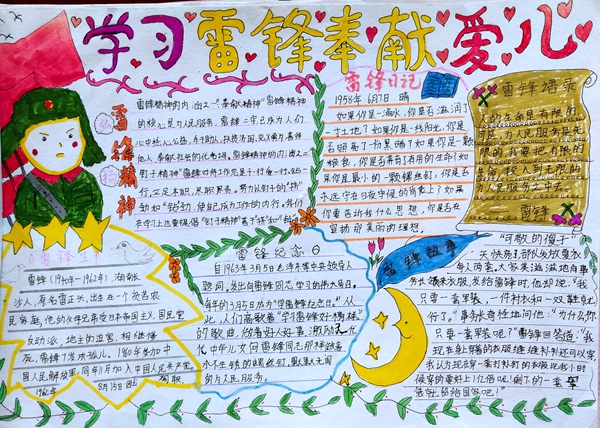 学习雷锋奉献爱心
雷锋精神
雷锋精神的内涵之一"奉献精神"雷锋精神
的核心是为人民服务,雷锋二字已成为人们
心中热心公益,乐于助人,扶贫济困,见义勇为,善待
他人,奉献社会的代名词。
行,立足本职,尽职尽责。努力从钉子的"挤"
在学习上也要提倡"钉子精神"善于"挤"和"钻"
雷锋日记
1958年6月7日 晴
如果你是一滴水,你是否滋润了
一寸土地?如果你是一线阳光,你是
否照亮了一份黑暗?如果你是一颗
粮食,你是否哺育了有用的生命?如
果你是最小的一颗螺丝钉,你是否
永远守在你生活的岗位上?如果
你要告诉我什么思想,你是否在
宣扬那美丽的理想
雷锋语录
人的生命是有限的
为人民服务是无
限的,我要把有限的
生命,投入到无限的
为人民服务之中去。
雷锋
雷锋生平
雷锋(1940年—1962年),湖南长
沙人,原名雷正兴,出生在一个贫苦农
民家庭,他的父母兄弟受日本帝国主义、国民党
反动派、地主的迫害,相继惨
死,雷锋7岁成孤儿。1960年参加中
国人民解放军,同年11月加入中国人民共产党。
1962年8月15日因公殉职
雷锋纪念日
自1963年3月5日毛泽东等中央领导人
题词,发出向雷锋同志学习的伟大号召。
每年的3月5日成为"学雷锋纪念日"。从
此,人们高歌着"学习雷锋好榜样"
的歌曲,做着好人好事,激励无一代
代中华儿女向雷锋同志那样做着
永不生锈的螺丝钉,默默无闻
的为人民服务。
雷锋故事
"可敬的傻子"
一天快凉了部队发放夏衣
每人两套,大家美滋滋地有事
务长领来衣服,发给雷锋时,他却说:"我
只要一套军装,一件衬衣和一双鞋就
行了。"事务长奇怪地问他:"为什么你
只要一套军装呢?"雷锋回答道:"我
现在身上穿着的衣服缝缝补补还可以穿,
我认为现在穿一套打补钉的衣服比我小时
候穿的要好上千亿倍呢!剩下的一套军
装就给国家吧!"